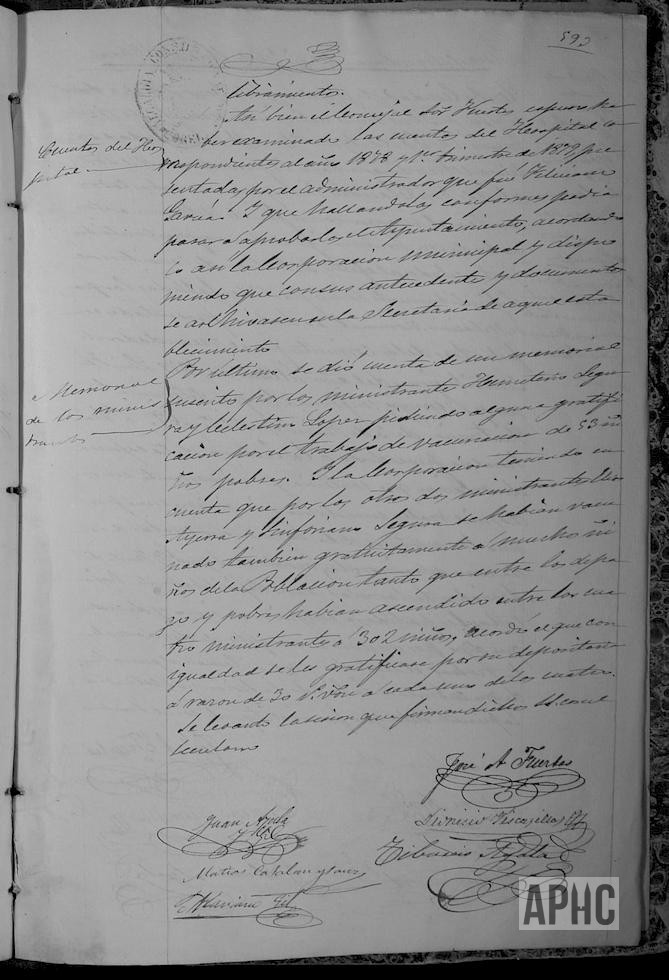 593
libramientos.
Así bien el Concejal Sor Fuertes espuso ha
ber examinado las cuentas del Hospital co
Cuentas del Hos
pital
rrespondientes al año 1878 y 1er trimestre de 1879, pre
sentadas por el administrador que fué Feliciano
Garcia. Y que hallandolas conformes podia
pasar á aprobarlas el Ayuntamiento, acordando
lo asi la Corporacion municipal y dispo
niendo que con sus antecedente y documentos
se archivasen en la Secretaria de aquel esta
blecimiento
Por último se dió cuenta de un memorial
Memorial
de los minis
trantes
suscrito por los ministrante Hemeterio Segu
ra y Celestino Lopez pidiendo alguna gratifi
cacion por el trabajo de vacunacion de 53 ni
ños pobres. Y la Corporacion teniendo en
cuenta que por los otros dos ministrantes
Ayerra y Sinforiano Segura se habian vacu
nado tambien gratuitamente a mucho ni
ños de la Poblacion tanto que entre los de pa
go y pobres habian ascendido entre los cua
tro ministrantes á 302 niños, acordó el que con
igualdad se les gratificase por su depositario
á razon de 30 rs. von á cada uno de los cuatro.
Se levantó la sesion que firman dichos SS. con el
Secretario
José A Fuertes
Juan Ayala
y Gil
Dionisio Vescajillas
Matias Catalan y Sanz
Tiburcio Ayala
Mariano Gil
APHC